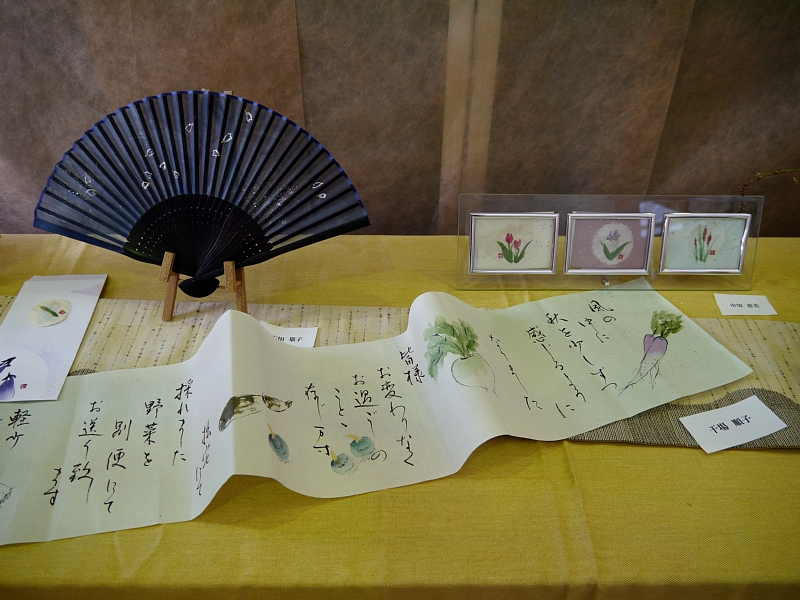 風の中に
秋を少しずつ
感じるように
なりました
皆様
お変わりなく
お過ごしの
ことと
存じます
採れました
野菜を
別便にて
お送り致し
ます
干場 順子